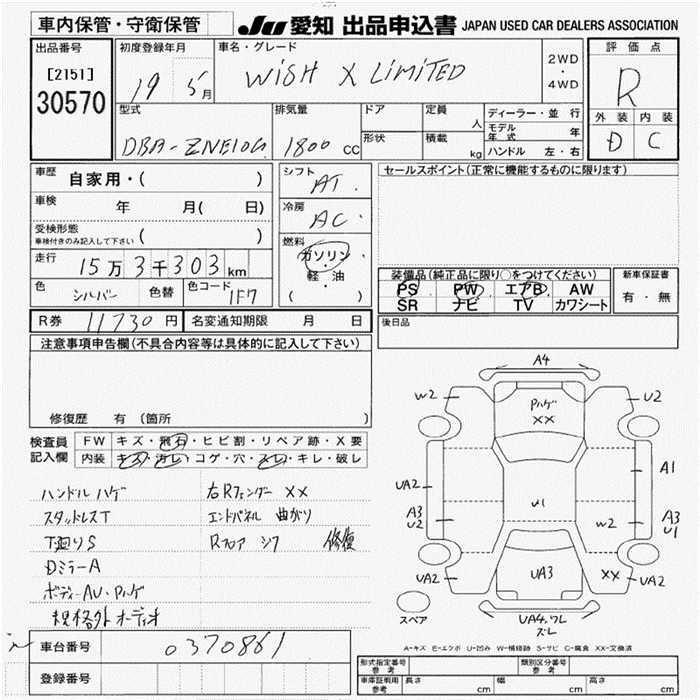 車内保管・守衛保管 JU 愛知 出品申込書 JAPAN USED CAR DEALERS ASSOCIATION
出品番号 初度登録年月 車名・グレード 2WD・4WD 評価点
[2151] 30570 19 5月 WiSH X LiMiTED R
外装 内装
D C
型式 排気量 ドア 定員 人 ディーラー・並行
DBA-ZNE10G 1800cc 形状 積載 kg モデル年式 年
ハンドル 左・右
車歴 自家用・( ) シフト AT セールスポイント(正常に機能するものに限ります)
車検 年 月( 日) 冷房 AC
受検形態 車検付きのみ記入して下さい ( ) 燃料 ガソリン・軽油 ( )
走行 15万3千303km
色 シルバー 色替 色コード 1F7
装備品(純正品に限り○をつけてください) 新車保証書
PS PW エアB AW 有・無
SR ナビ TV カワシート
R券 11730円 名変通知期限 月 日 後日品
注意事項申告欄(不具合内容等は具体的に記入して下さい)
修復歴 有(箇所 )
検査員記入欄 FW キズ・飛石・ヒビ割・リペア跡・X要
内装 キズ・汚レ・コゲ・穴・スレ・キレ・破レ
ハンドル ハゲ 右Rフェンダー XX
スタッドレスT エンドパネル 曲がり
下廻りS Rフロア シワ 修復
DミラーA
ボディーAU・Pハゲ
規格外オーディオ
A4
W2 Pハゲ XX U2
UA2 U1 A1
A3 U2 W2 A3 U1
UA2 UA3 XX UA2
スペア UA4,ワレ
ズレ
A-キズ E-エクボ U-凹み W-補修跡 S-サビ C-腐食 XX-交換済
車台番号 0370861
登録番号
形式指定番号 参考 類別区分番号 参考
車庫証明用 参考 長さ cm 幅 cm 高さ cm